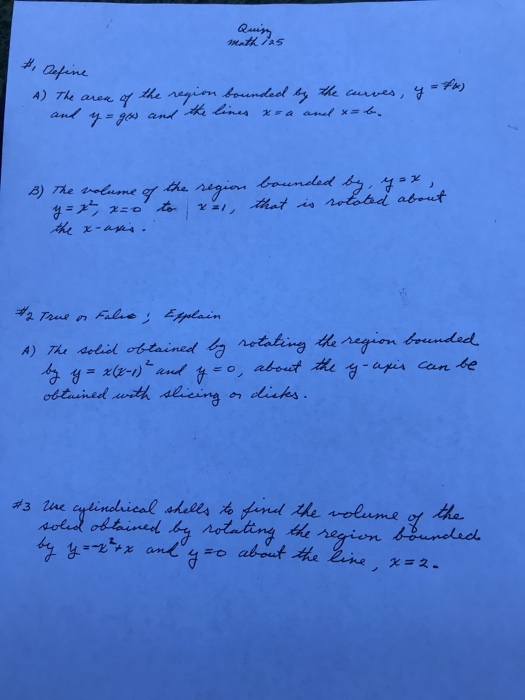 Quizz
Math 125
#1 Define
A) The area of the region bounded by the curves, y = f(x)
and y = g(x) and the lines x = a and x = b.
B) The volume of the region bounded by, y = x,
y = x², x = 0 to x = 1, that is rotated about
the x-axis.
#2 True or False; Explain
A) The solid obtained by rotating the region bounded
by y = x(x-1)² and y = 0, about the y-axis can be
obtained with slicing or disks.
#3 Use cylindrical shells to find the volume of the
solid obtained by rotating the region bounded
by y = -x² + x and y = 0 about the line, x = 2.